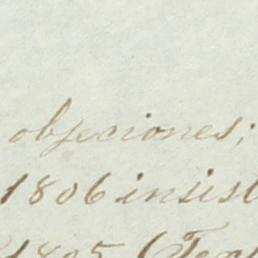 objeciones;
1806 insist
1805 (Ten